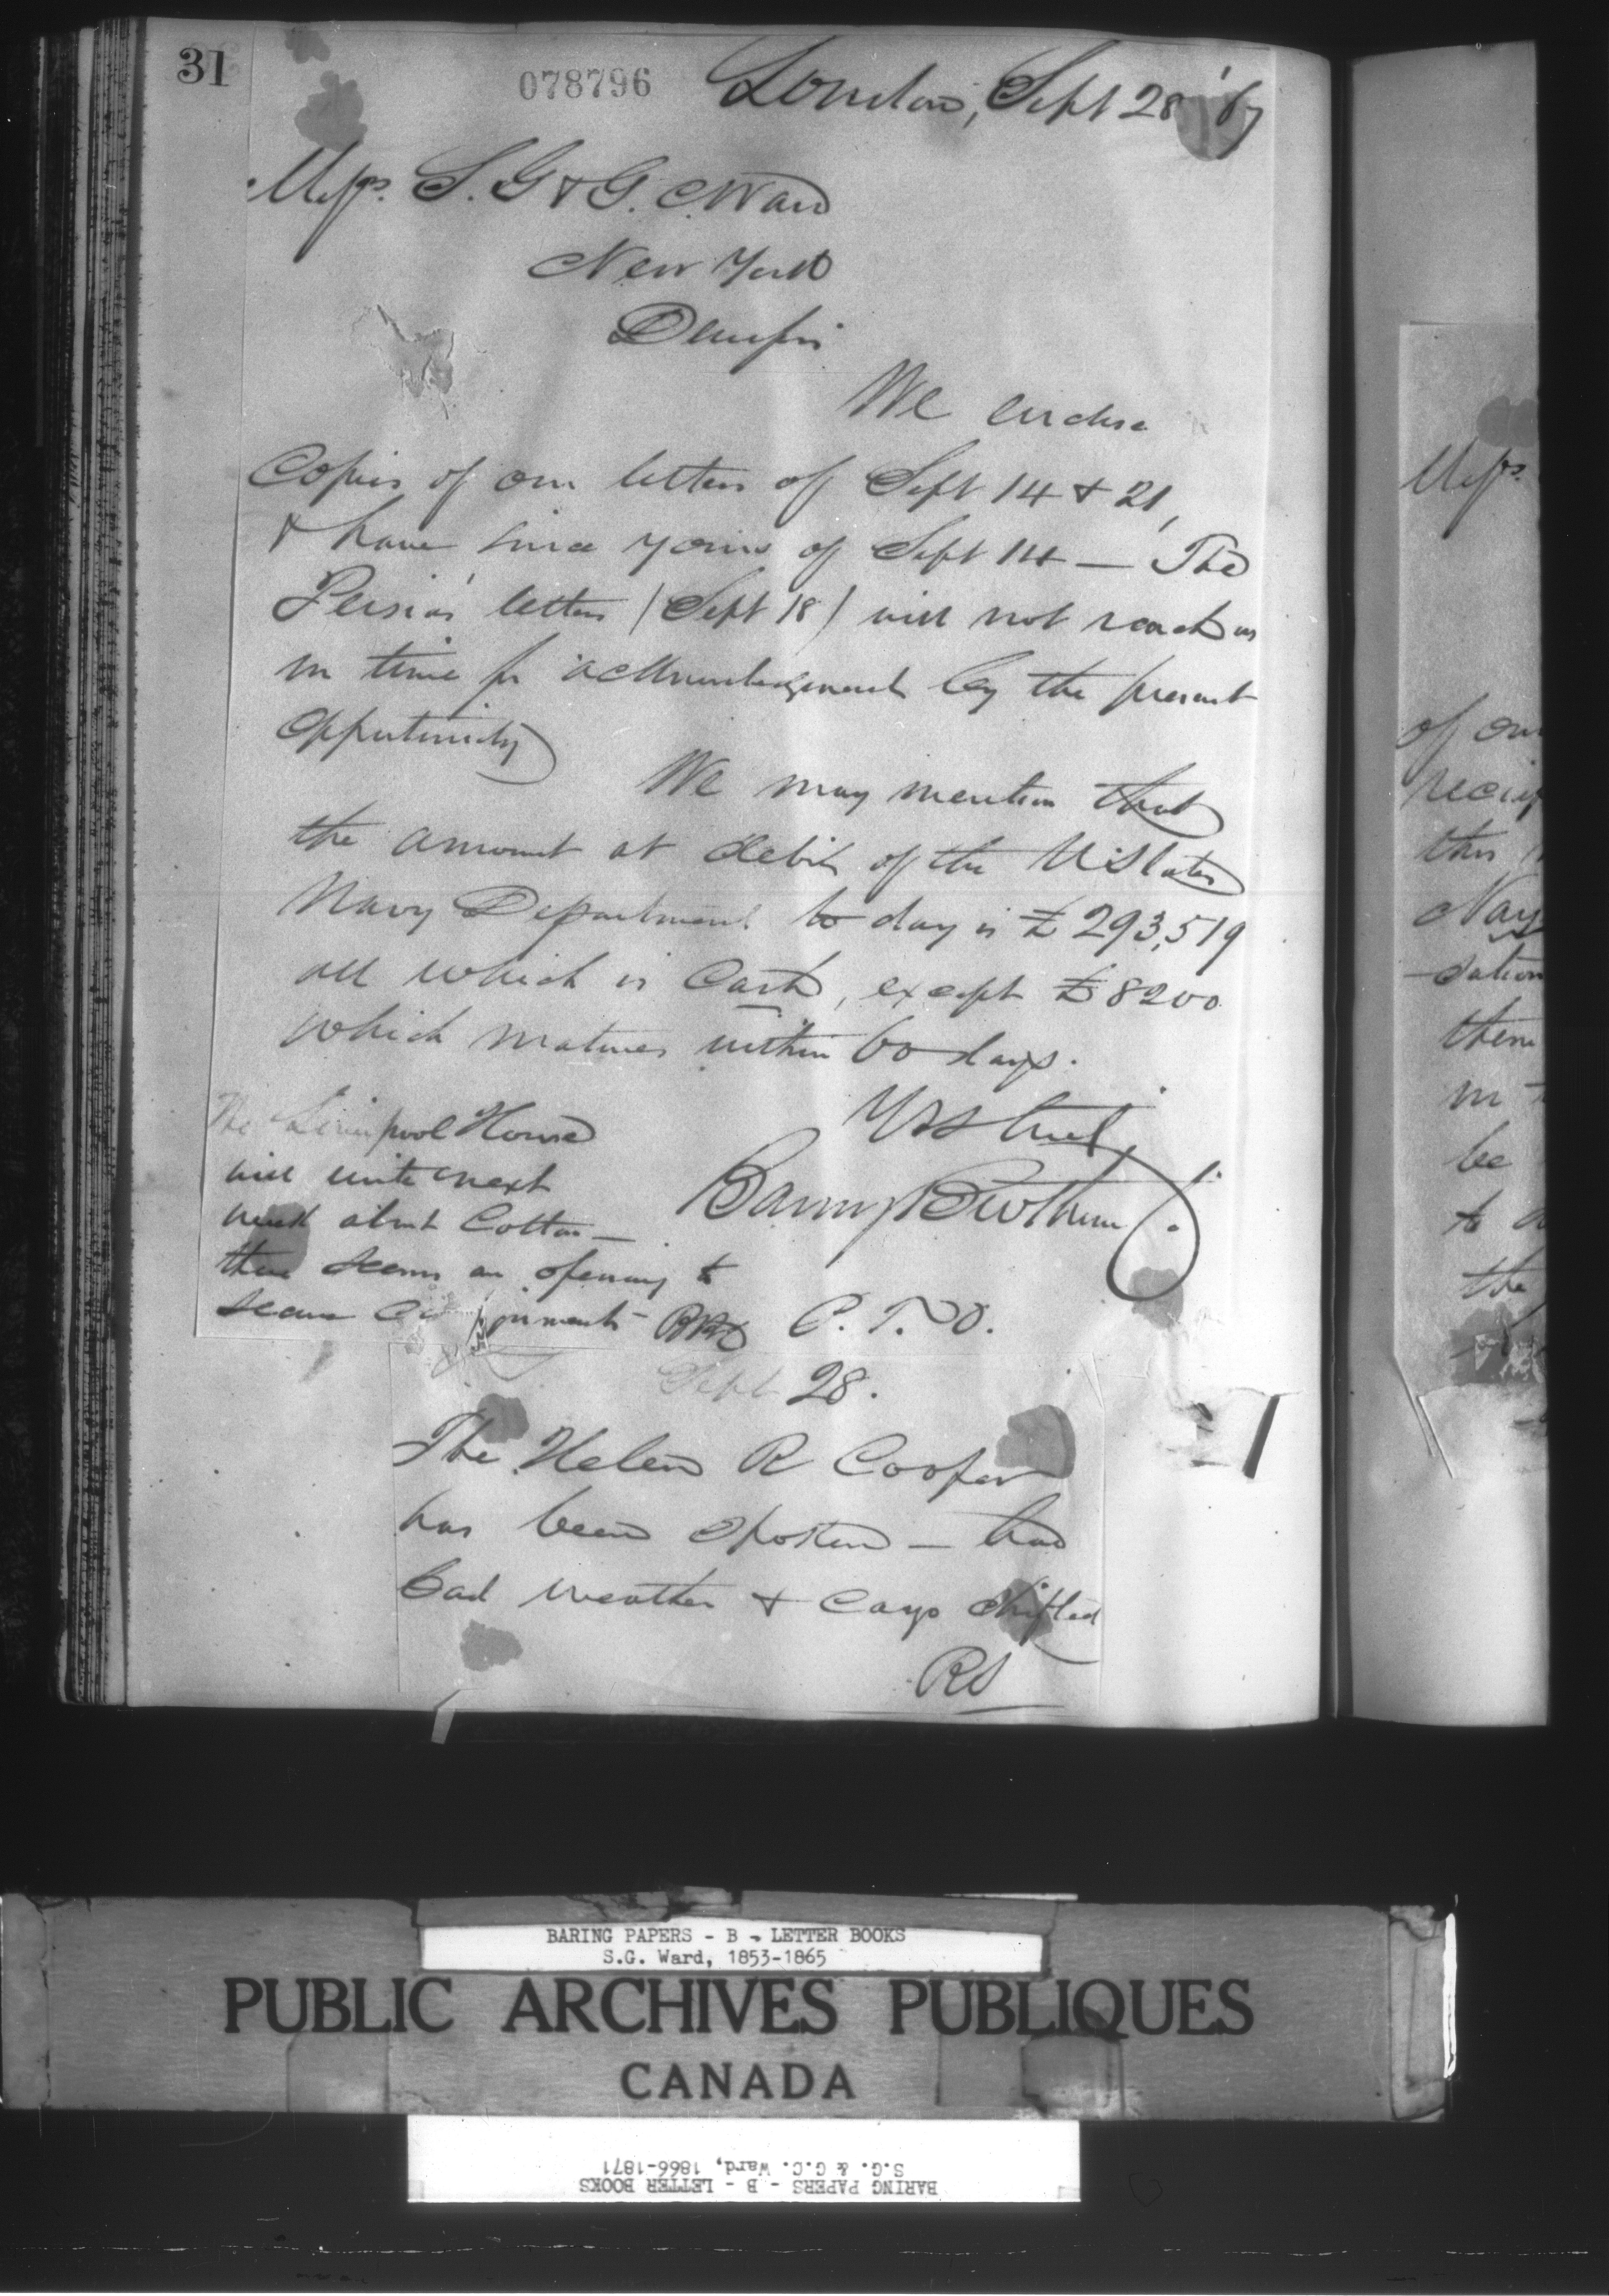 31
078796
London, Sept 28 '67
Messrs. S. G & G. C. Ward
New York
Dear Sirs
We enclose
Copies of our letters of Sept 14 & 21,
& have since yours of Sept 14 — The
Persia's letters (Sept 18) will not reach us
in time for acknowledgement by the present
opportunity
We may mention that
the amount at debit of the U States
Navy Department to day is £293,519
all which is Cash, except £8200
which matures within 60 days.
Yrs truly
Baring Brothers
The Liverpool House
will write next
week about Cotton —
there seems an opening to
secure consignments
P. T. O.
Sept 28.
The Helen R Cooper
has been spoken — had
bad weather & cargo shifted
RS
Messrs
of our
this
them
in
be
to
the
BARING PAPERS - B - LETTER BOOKS
S.G. Ward, 1853-1865
PUBLIC ARCHIVES PUBLIQUES
CANADA
BARING PAPERS - B - LETTER BOOKS
S.G. & G.C. Ward, 1866-1871